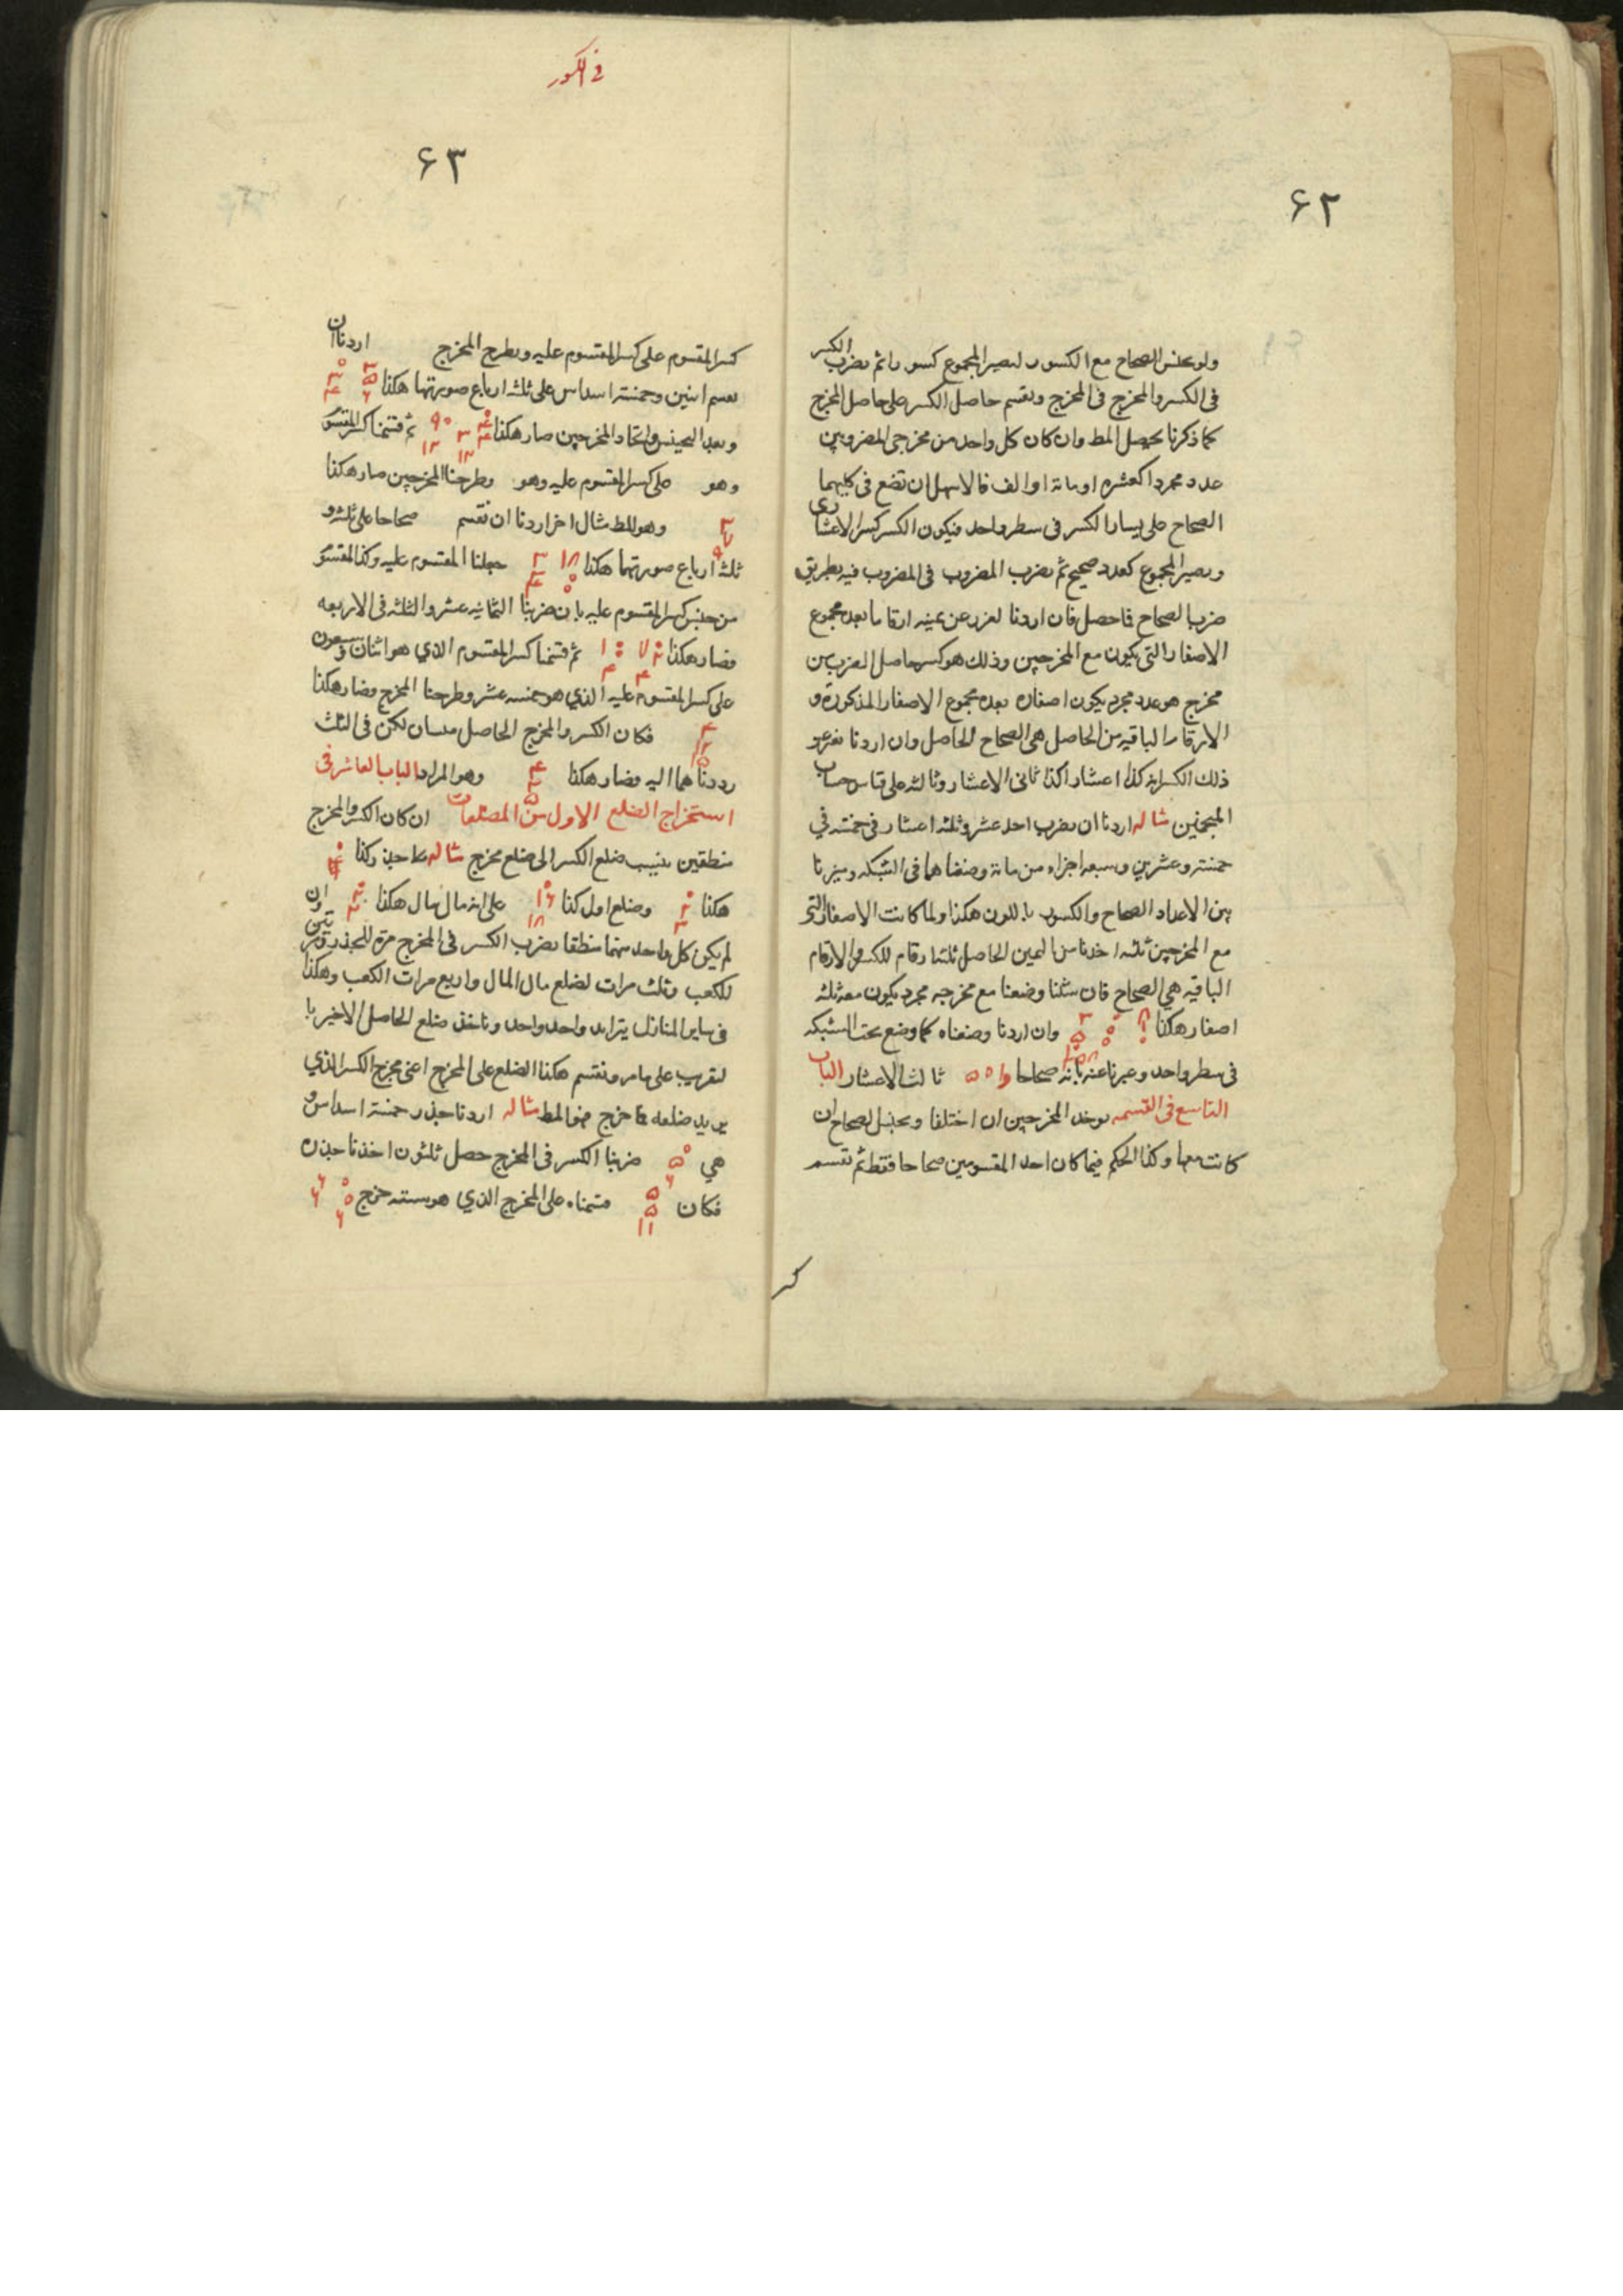 ۶۲
ولو بجنس الصحاح مع الكسور ليصير المجموع كسورا ثم يضرب الكسر
فى الكسر والمخرج فى المخرج ونقسم حاصل الكسر على حاصل المخرج
كما ذكرنا يحصل المط وان كان كل واحد من مخرجى المضروبين
عدد مجردا كعشره او مائة او الف فالاسهل ان تضع فى كليهما
الصحاح على يسار الكسر فى سطر واحد فيكون الكسر كسر الاعشارى
ويصير المجموع كعدد صحيح ثم يضرب المضروب فى المضروب فيه بطريق
ضرب الصحاح فما حصل فان اردنا نفرز عن يمينه ارقاما بعدد مجموع
الاصفار التى يكون مع المخرجين وذلك هو كسر حاصل الضرب من
مخرج هو عدد مجرد يكون اصفاره بعدد مجموع الاصفار المذكورة و
الارقام الباقيه من الحاصل هى الصحاح الحاصل وان اردنا
ذلك الكسر انه كذا اعشار اكذا ثانى الاعشار وثالثه على قياس حساب
المنجمين مثاله اردنا ان يضرب احد عشر وثلثه اعشار فى خمسه فى
خمسة وعشرين وسبعه اجزاء من مائة وضعناهما فى الشبكه وميزنا
بين الاعداد الصحاح والكسور باللون هكذا ولما كانت الاصفار التى
مع المخرجين ثلثه اخذنا من اليمين الحاصل ثلثة ارقام للكسر والارقام
الباقيه هى الصحاح فان شئنا وضعنا مع مخرجه مجرد يكون معه ثلثه
اصفار هكذا وان اردنا وضعناه كما وضع تحت الشبكه
فى سطر واحد وعبرنا عنه بانه صحاحا و ا ٥ ۵ ثالث الاعشار الباب
التاسع فى القسمه يوخذ المخرجين ان اختلفا ويجنس الصحاح ان
كانت معها وكذا الحكم فيما كان احد المقسومين صحاحا فقط ثم نقسم
كسر
فى الكسور
۶۳
كسر المقسوم على كسر المقسوم عليه ويطرح المخرج اردنا ان
نقسم اثنين وخمسة اسداس على ثلثه ارباع صورتهما هكذا
وبعد التجنيس واتحاد المخرجين صار هكذا ثم قسمنا كسر المقسوم
وهو على كسر المقسوم عليه وهو وطرحنا المخرجين صار هكذا
وهو المط مثال اخر اردنا ان نقسم صحاحا على ثلثه و
ثلثه ارباع صورتهما هكذا جعلنا المقسوم عليه وكذا المقسوم
من جنس كسر المقسوم عليه بان ضربنا الثمانيه عشر والثلثه فى الاربعه
فصار هكذا ثم قسمنا كسر المقسوم الذي هو اثنان وسبعون
على كسر المقسوم عليه الذي هو خمسه عشر وطرحنا المخرج فصار هكذا
فكان الكسر والمخرج الحاصل لكن فى الثلث
رددناهما اليه فصار هكذا وهو المراد الباب العاشر فى
استخراج الضلع الاول من المضلعات ان كان الكسر والمخرج
منطقين ننسب ضلع الكسر الى ضلع مخرج مثاله ما جذر كذا
هكذا وضلع اول كذا على انه مال مال هكذا وان
لم يكن كل واحد منهما منطقا يضرب الكسر فى المخرج مرة للجذر ومرتين
للكعب وثلث مرات لضلع مال المال واربع مرات الكعب وهكذا
فى ساير المنازل يتزايد واحد واحد وناخذ ضلع الحاصل الاخير با
لتقريب على ما مر ونقسم هكذا الضلع على المخرج اعنى مخرج الكسر الذي
يريد ضلعه فما خرج فهو المط مثاله اردنا جذر خمسة اسداس و
هي ضربنا الكسر فى المخرج حصل ثلثون اخذنا جذره
فكان قسمناه على المخرج الذي هو سته خرج